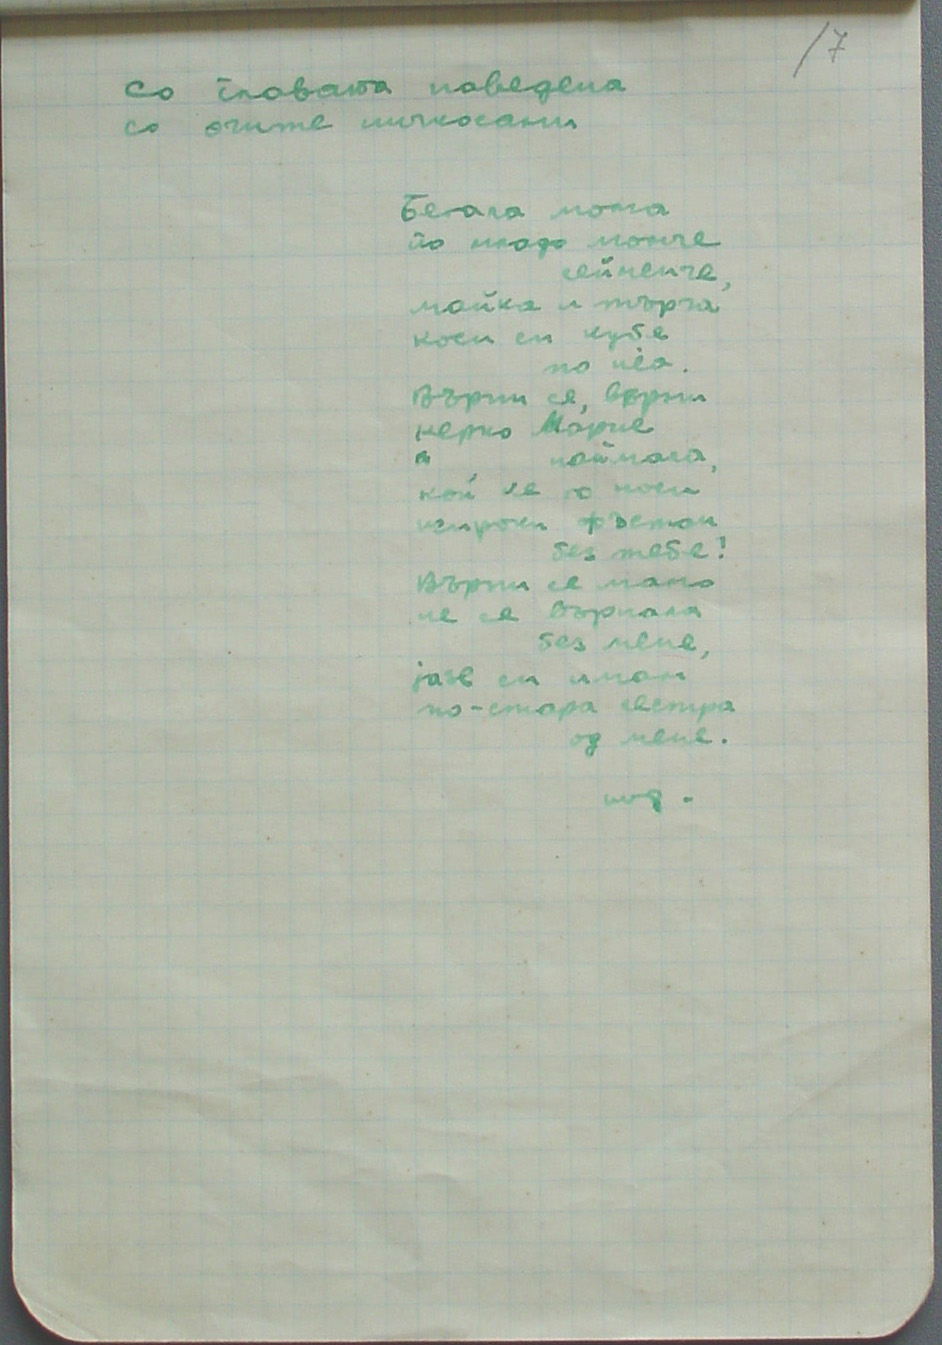 /7
со главата наведена
со очите
Бегала мома
по младо момче
сейменче,
майка и търча
коси си кубе
по неа.
Върни се, върни
керко Марие
най мала,
кой ке го носи
широки фъстан
без тебе!
Върни се мамо
не се върнала
без мене,
јазе си имам
по-стара сестра
од мене.